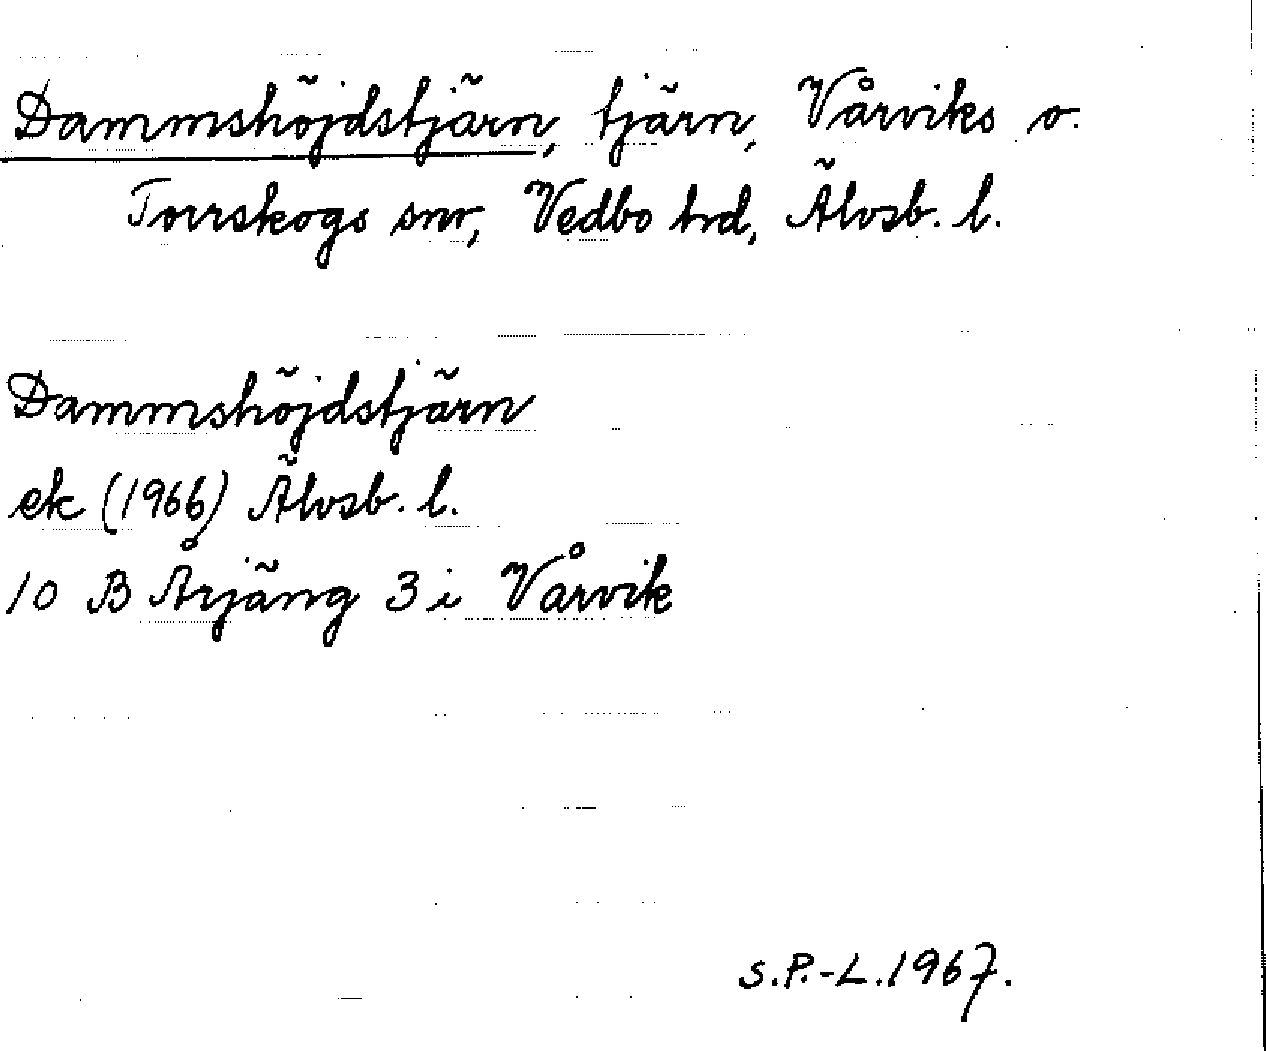 Dammshöjdstjärn, tjärn, Vårviks o.
Torrskogs snr, Vedbo hrd, Älvsb. l.
Dammshöjdstjärn
ek (1966) Älvsb. l.
10 B Årjäng 3 i Vårvik
S.P.-L.1967.